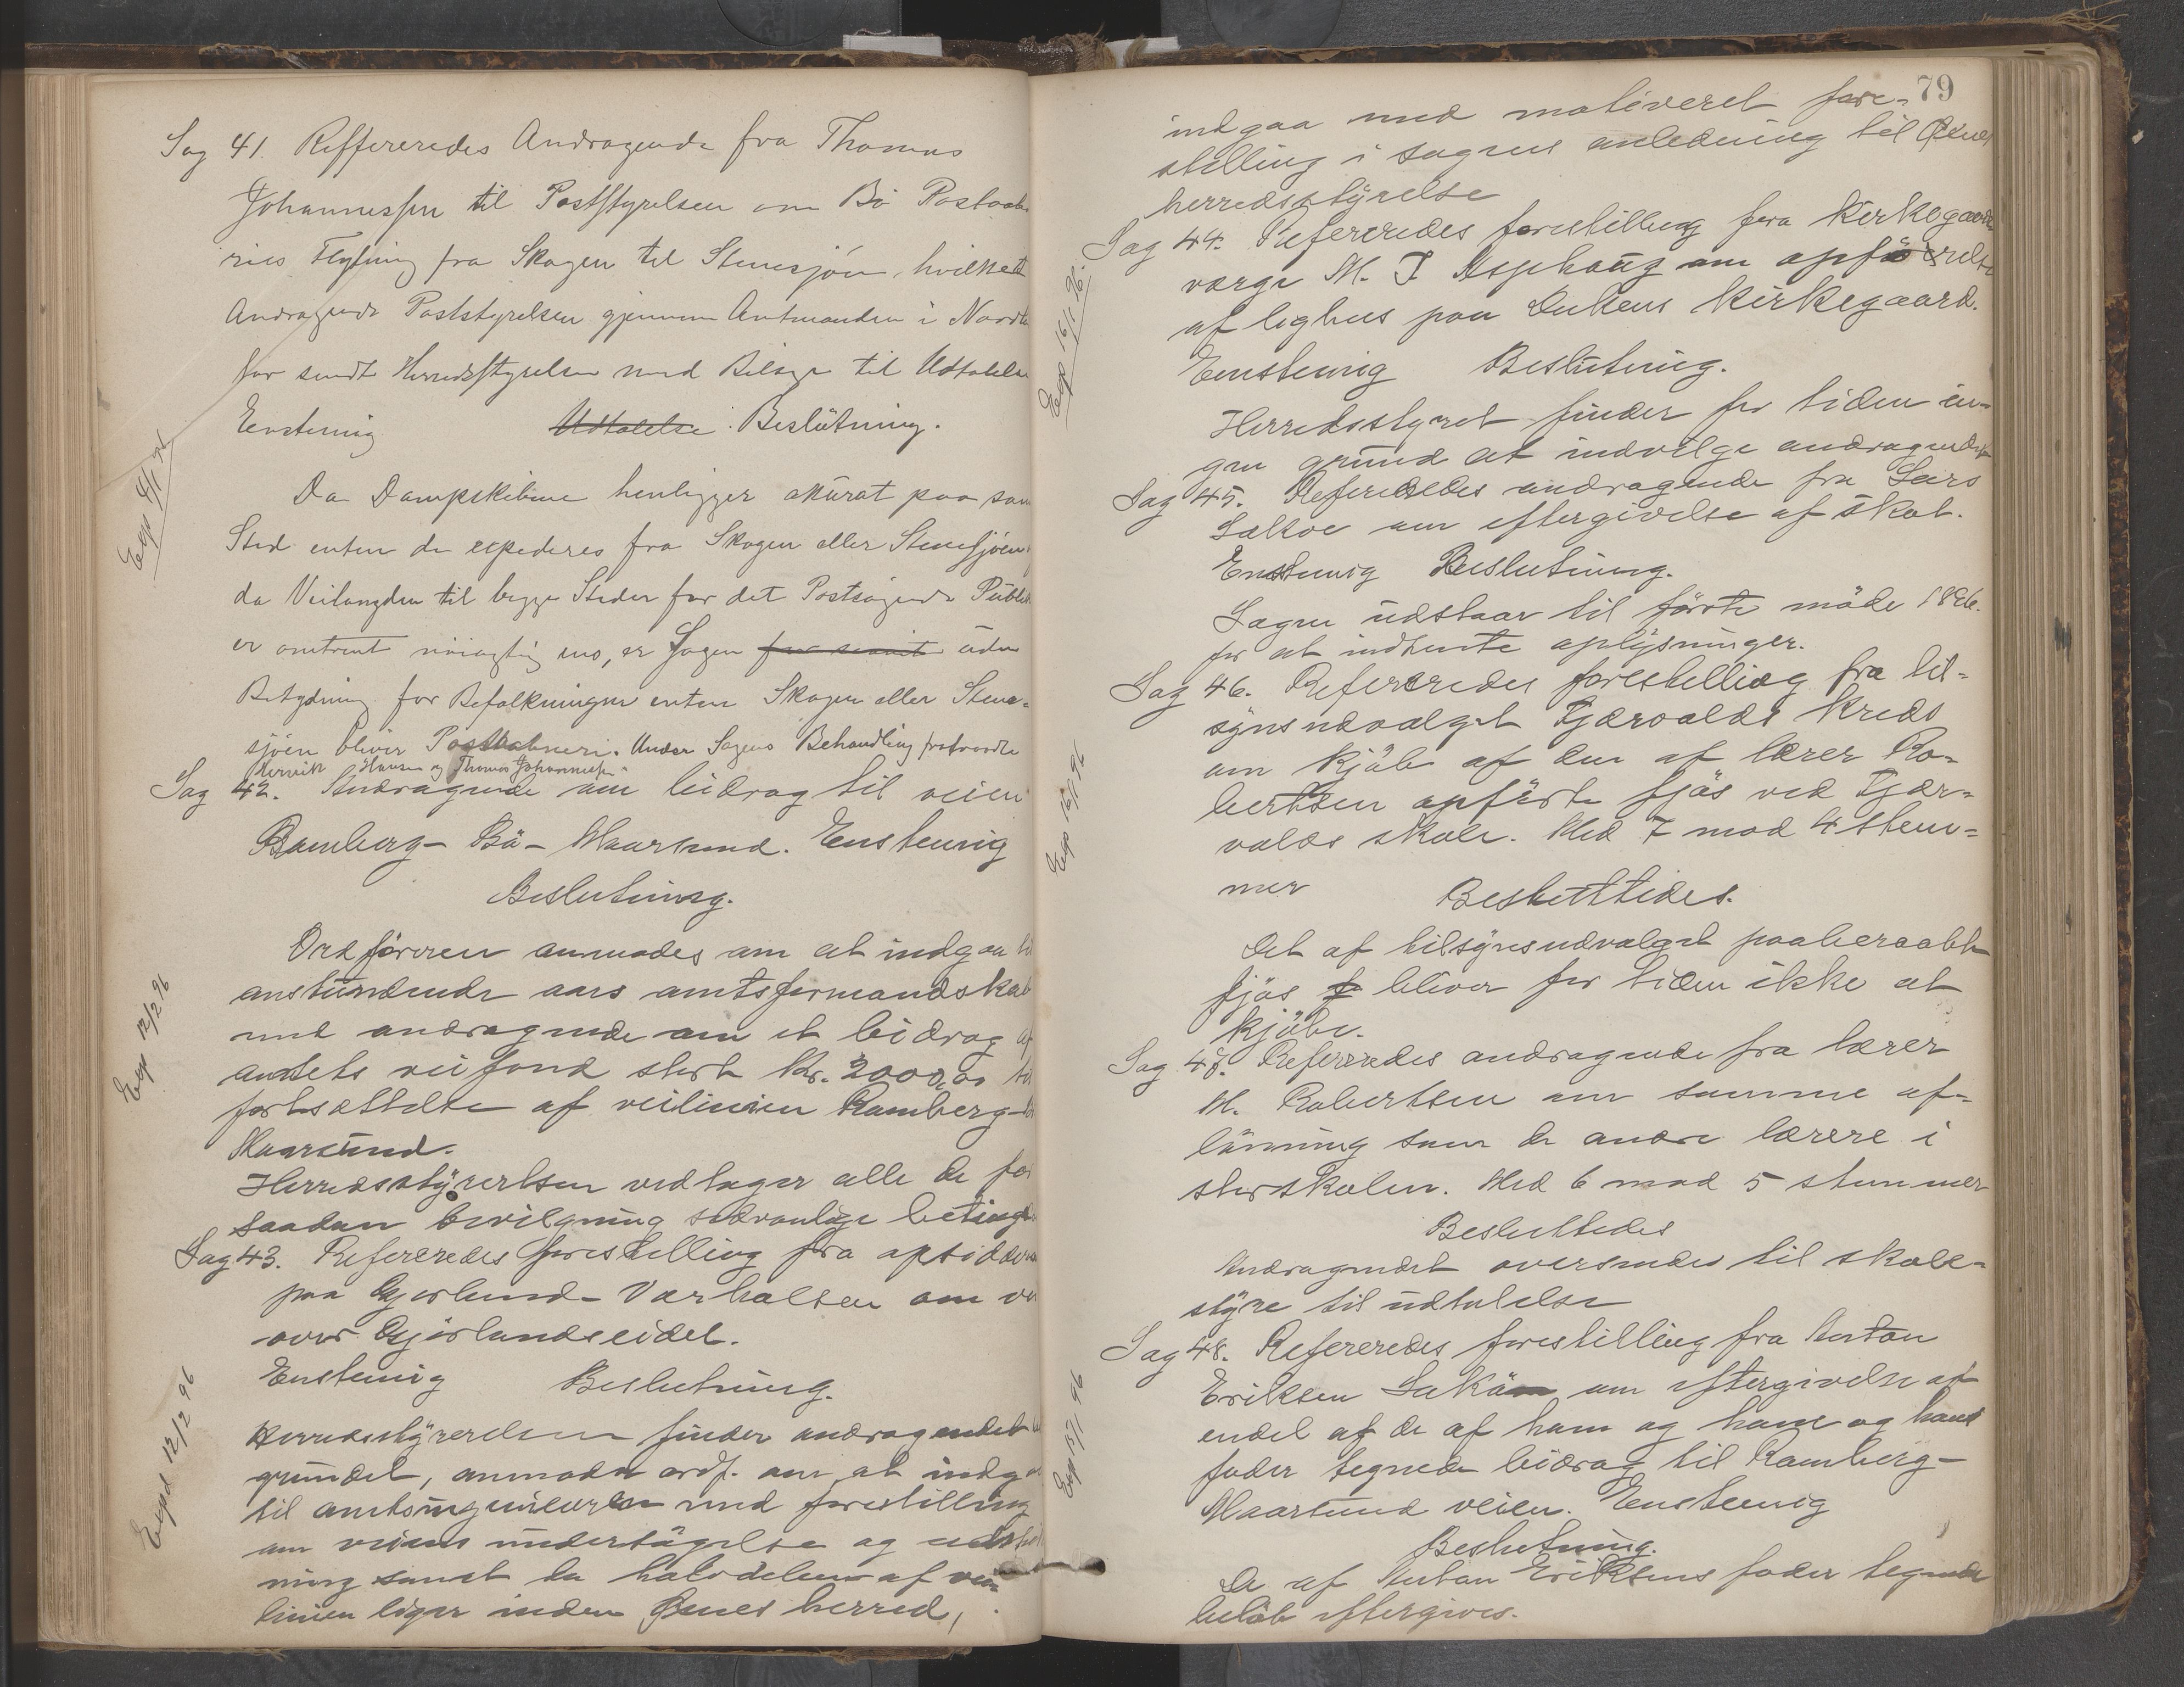 Sag 41. Reffereredes Andragende fra Thomas
Johannessen til Poststyrelsen om Bö Postaab
ries Flytning fra Skagen til Stenesjöen, hvilket
Andragende Poststyrelsen gjennem Amtmanden i Nordl
har sendt Herredsstyrelsen med Bilage til Udtalelse
Enstemig Udtalelse Beslutning.
Exp 4/1 96
Da Dampskibene henligger akurat paa sam
Sted enten de expederes fra Skagen eller Stenesjöen,
da Veilængden til begge Steder for det Postsögende Publik
er omtrent nöiagtig ens, er Sagen uden
Betydning for Befolkningen enten Skagen eller Stene-
sjöen bliver Postaabneri. Under Sagens Behandling fratraadte
Hansen og Thomas Johannessen
Sag 42. Andragende om bidrag til veien
Ramberg - Bö - Maarsund. Enstemig
Beslutning.
Ordföreren anmodes om at indgaa til
anstundende aars amtsformandskab
med andragende om et bidrag af
amtets veifond stort Kr. 2000,00 til
fortsættelse af veilinien Ramberg -
Maarsund.
Exp 12/2 96
Herredsstyrelsen vedtager alle de for
saadan bevilgning sedvanlige betingel
Sag 43. Refereredes forestilling fra opsiddere
paa Gjerlund - Vœrhalsen om vei
over Gjörlundseidet.
Enstemig Beslutning.
Herredsstyrelsen finder andragendet
grundet, anmoder ordf. om at indgaa
til amtsingeniören med forestilling
om veiens undersögelse og
ning samt da halvdelen af vei-
linien liger inden Öxnes herred,
Expd 12/2 96
79
indgaa med motiveret fore-
stilling i sagens anledning til Öxnes
herredsstyrelse
Sag 44. Refereredes forestilling fra Kirkegaards
værge M. J. Asphaug om opförelse
af lighus paa Kirkegaard.
Exp 16/1 96.
Enstemig Beslutning.
Herredsstyret finder for tiden in-
gen grund at indvilge andragendet
Sag 45. Refereredes andragende fra Lars
om eftergivelse af skat.
Enstemig Beslutning.
Sagen udstaar til förste möde 1896.
for at indhente oplysninger.
Sag 46. Refereredes forestilling fra til-
synsudvalget Fjærvolds Kreds
om kjöb af den af lærer Ro-
bertsen opförte fjös ved Fjær-
volds skole. Med 7 mod 4 stem-
mer Besluttedes.
Exp 16/1 96
Det af tilsynsudvalget paaberaabte
fjös bliver for tiden ikke at
kjöbe.
Sag 47. Refereredes andragende fra lærer
M. Robertsen om samme af-
lönning som de andre lærere i
storskolen. Med 6 mod 5 stemmer
Besluttedes
Andragendet oversendes til skole-
styre til udtalelse
Sag 48. Refereredes forestilling fra Anton
Eriksen om eftergivelse af
endel af de af ham og hans og hans
fader tegnede bidrag til Ramberg -
Maarsund veien. Enstemig
Beslutning.
Exp 13/1 96
De af Anton Eriksens fader tegnede
belöb eftergives.